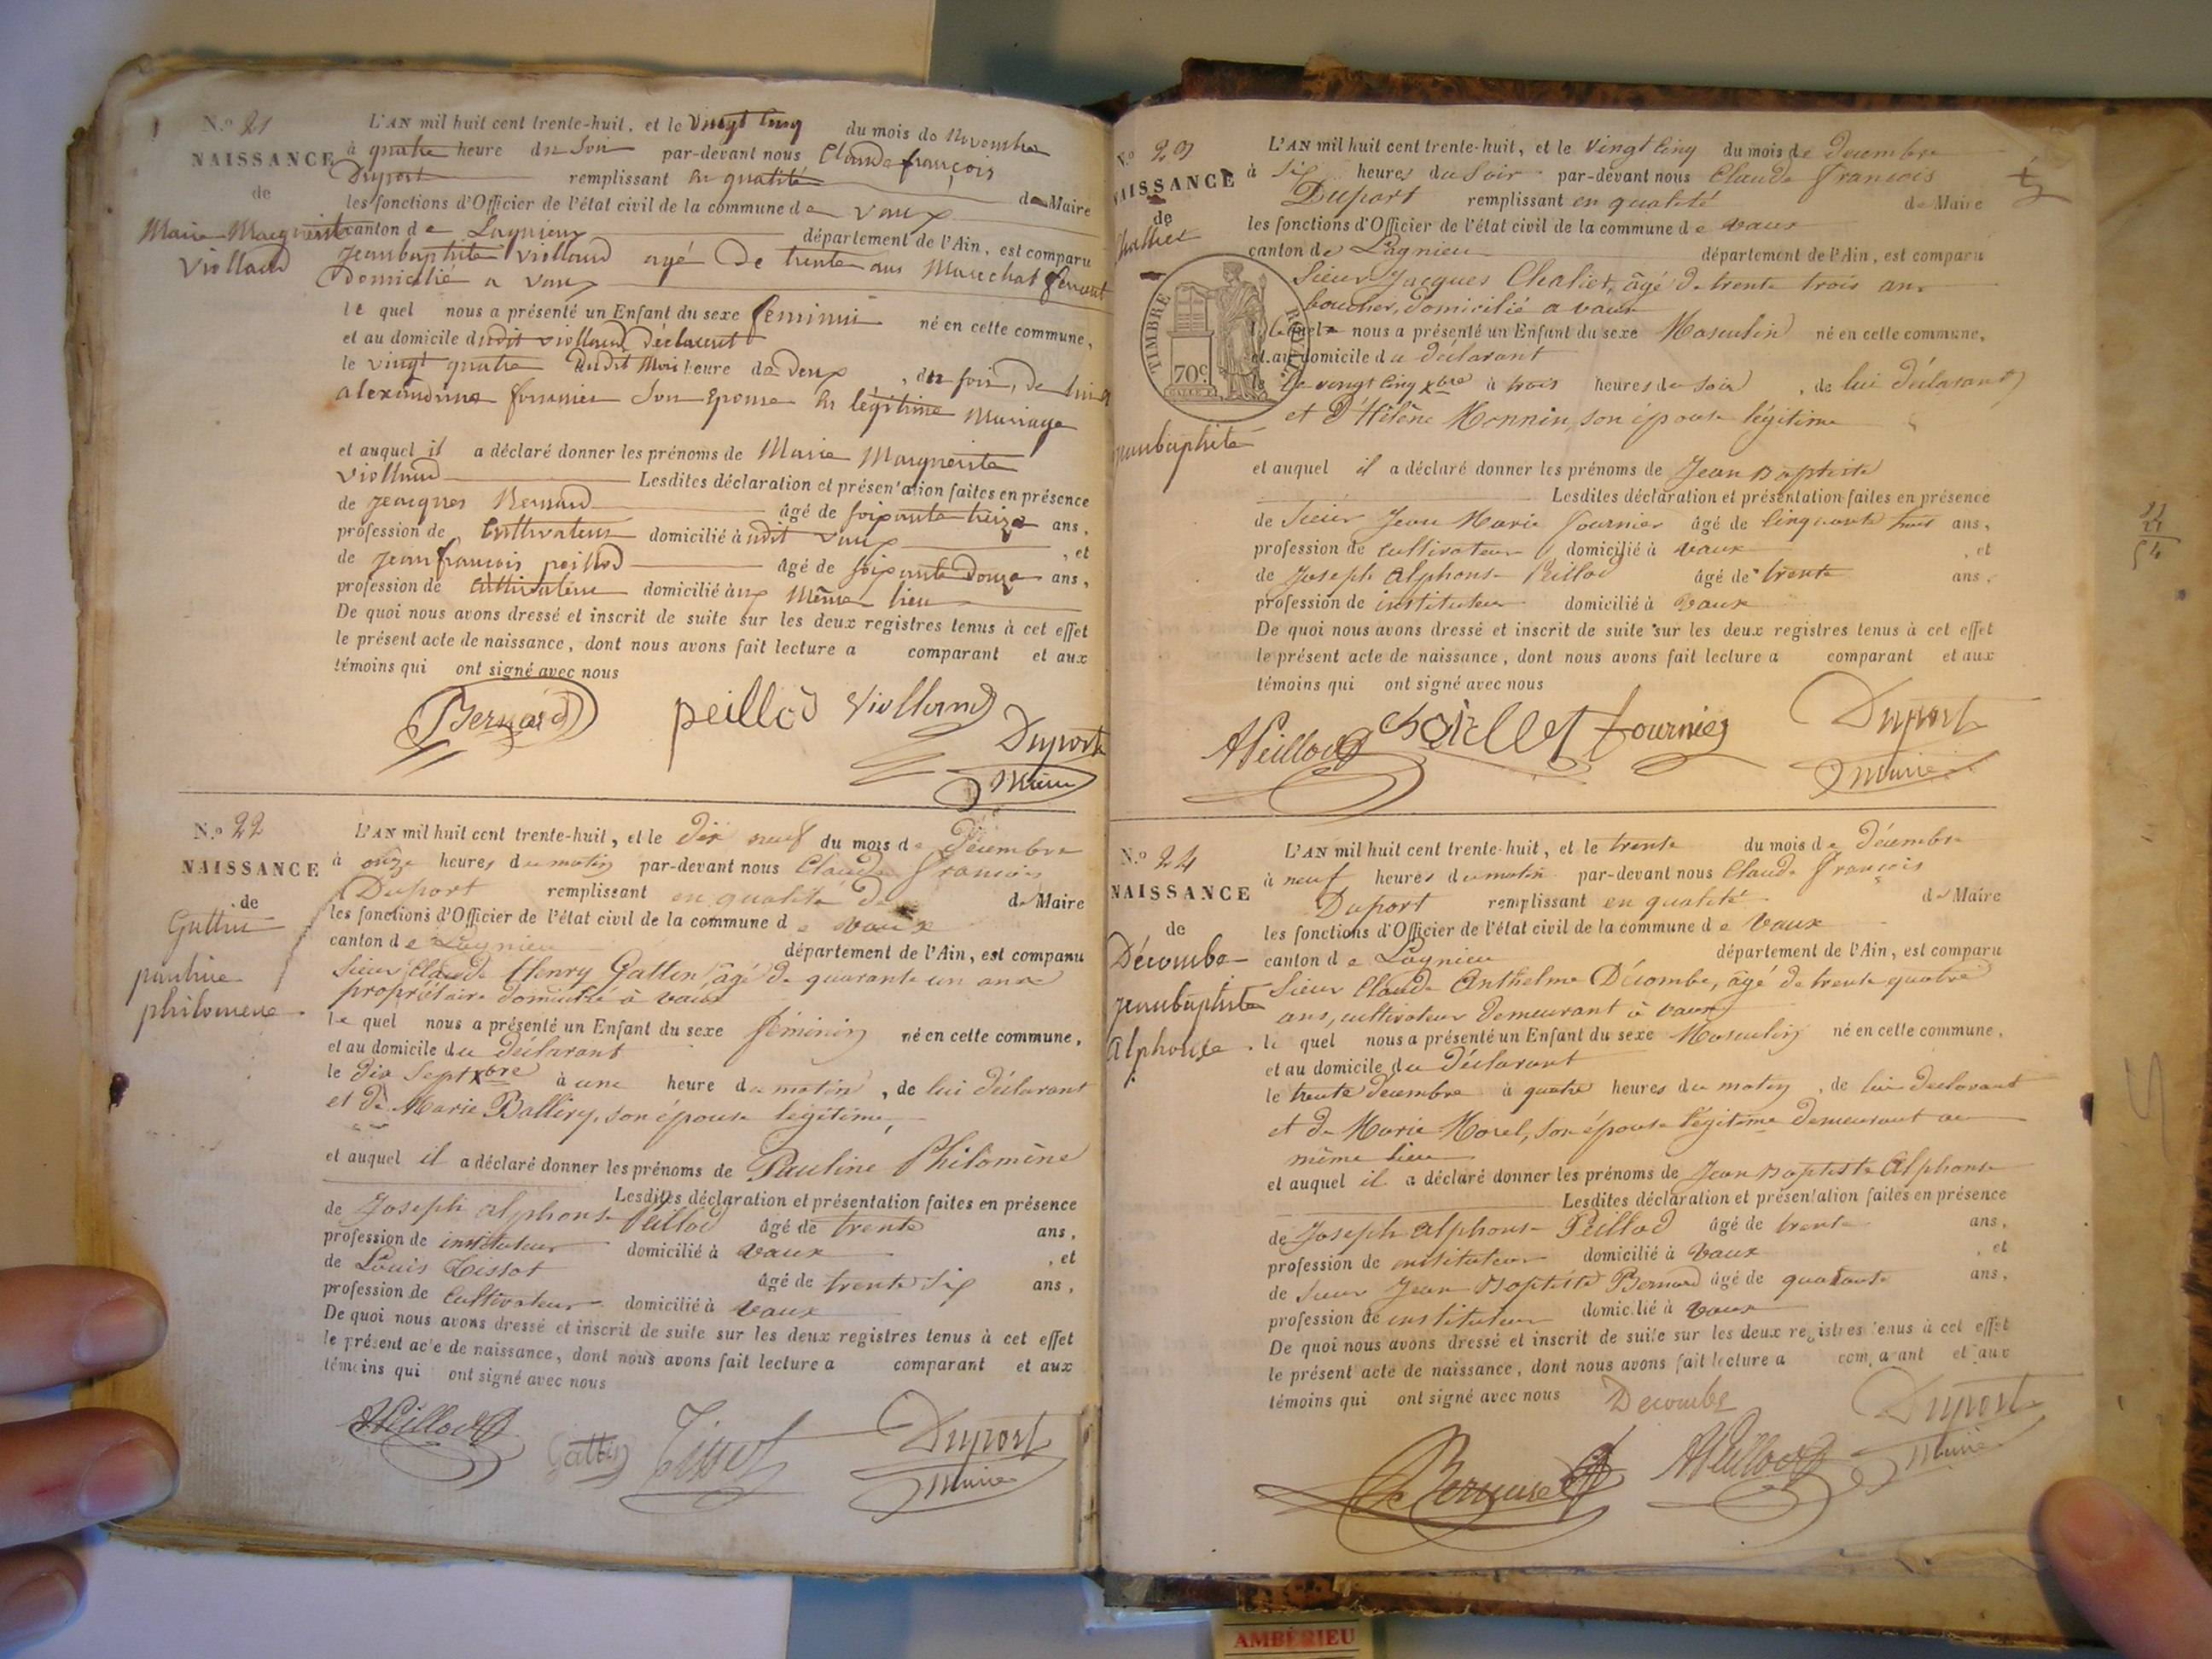 N.º 21
NAISSANCE
de
Marie Marguerite
Viollaud
L'AN mil huit cent trente-huit, et le vingt cinq du mois de Novembre
à quatre heure du Soir par-devant nous Claude françois
Duport remplissant en qualité de Maire
les fonctions d'Officier de l'état civil de la commune de vaux
canton de Lagnieu département de l'Ain, est comparu
Jeanbaptiste Viollaud agé de trente ans Marechal ferrant
Domicilié a vaux
le quel nous a présenté un Enfant du sexe feminin né en cette commune,
et au domicile dudit viollaud déclarant
le vingt quatre dudit mois heure de deux, du soir, de lui et
alexandrine fournier Son Epouse en légitime Mariage
et auquel il a déclaré donner les prénoms de Marie Marguerite
Viollaud Lesdites déclaration et présentation faites en présence
de Jeacques Bernard âgé de soixante treize ans,
profession de Cultivateur domicilié à udit vaux, et
de Jeanfrancois peillod âgé de soixante Douze ans,
profession de Cultivateur domicilié aux Même lieu
De quoi nous avons dressé et inscrit de suite sur les deux registres tenus à cet effet
le présent acte de naissance, dont nous avons fait lecture a comparant et aux
témoins qui ont signé avec nous
Bernard peillod Viollaud Duport
Maire
N.º 22
NAISSANCE
de
Guttin
pauline
philomene
L'AN mil huit cent trente-huit, et le dix neuf du mois de Décembre
à onze heures du matin par-devant nous Claude François
Duport remplissant en qualité de de Maire
les fonctions d'Officier de l'état civil de la commune de vaux
canton de Lagnieu département de l'Ain, est comparu
Sieur Claude Henry Gattin, âgé de quarante un ans
propriétaire domicilié à vaux
le quel nous a présenté un Enfant du sexe féminin né en cette commune,
et au domicile du déclarant
le dix Sept Xbre à une heure du matin, de lui déclarant
et de Marie Ballivy, son épouse légitime,
et auquel il a déclaré donner les prénoms de Pauline Philomène
Lesdites déclaration et présentation faites en présence
de Joseph alphonse Peillod âgé de trente ans,
profession de instituteur domicilié à vaux, et
de Louis Tissot âgé de trente six ans,
profession de Cultivateur domicilié à vaux
De quoi nous avons dressé et inscrit de suite sur les deux registres tenus à cet effet
le présent acte de naissance, dont nous avons fait lecture a comparant et aux
témoins qui ont signé avec nous
APeillod Gattin Tissot Duport
Maire
N.º 23
NAISSANCE
de
Challiet
jeanbaptiste
TIMBRE ROYAL
70c
L'AN mil huit cent trente-huit, et le vingt cinq du mois de Decembre
à six heures du Soir par-devant nous Claude François
Duport remplissant en qualité de Maire
les fonctions d'Officier de l'état civil de la commune de vaux
canton de Lagnieu département de l'Ain, est comparu
Sieur Jacques Chaliet, âgé de trente trois ans
boucher, domicilié a vaux
lequel nous a présenté un Enfant du sexe Masculin né en cette commune,
et au domicile du déclarant
le vingt cinq xbre à trois heures du soir, de lui déclarant
et d'Hélène Monnin, son épouse légitime
et auquel il a déclaré donner les prénoms de Jean Baptiste
Lesdites déclaration et présentation faites en présence
de Sieur Jean Marie Fournier âgé de Cinquante huit ans,
profession de cultivateur domicilié à vaux, et
de Joseph Alphonse Peillod âgé de trente ans,
profession de instituteur domicilié à vaux
De quoi nous avons dressé et inscrit de suite sur les deux registres tenus à cet effet
le présent acte de naissance, dont nous avons fait lecture a comparant et aux
témoins qui ont signé avec nous
APeillod fournier Duport
Maire
N.º 24
NAISSANCE
de
Décombe
jeanbaptiste
Alphonse
L'AN mil huit cent trente-huit, et le trente du mois de Décembre
à neuf heures du matin par-devant nous Claude François
Duport remplissant en qualité de Maire
les fonctions d'Officier de l'état civil de la commune de Vaux
canton de Lagnieu département de l'Ain, est comparu
Sieur Claude Anthelme Décombe, âgé de trente quatre
ans, cultivateur demeurant à vaux
le quel nous a présenté un Enfant du sexe Masculin né en cette commune,
et au domicile du déclarant
le trente décembre à quatre heures du matin, de lui déclarant
et de Marie Morel, son épouse légitime demeurant au
même lieu
et auquel il a déclaré donner les prénoms de Jean Baptiste Alphonse
Lesdites déclaration et présentation faites en présence
de Joseph Alphonse Peillod âgé de trente ans,
profession de instituteur domicilié à vaux, et
de Sieur Jean Baptiste Bernard âgé de quarante ans,
profession de instituteur domicilié à vaux
De quoi nous avons dressé et inscrit de suite sur les deux registres tenus à cet effet
le présent acte de naissance, dont nous avons fait lecture a comparant et aux
témoins qui ont signé avec nous Decombe Duport
Bernard APeillod Maire
AMBÉRIEU